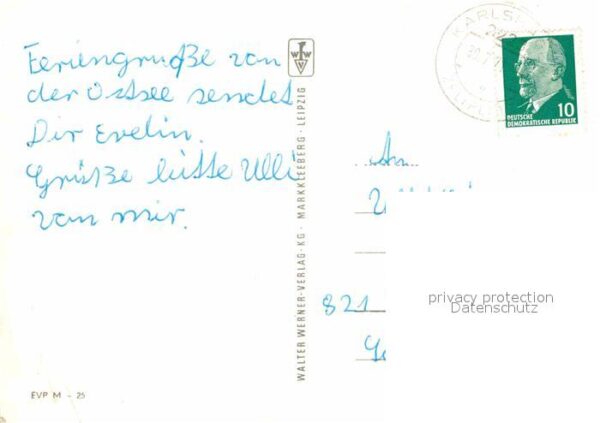 Feriengruße von
der Ostsee sendet
Dir Evelin.
Grüße bitte Ulli
von mir.
EVP M - 25
WALTER WERNER-VERLAG·KG · MARKKLEEBERG · LEIPZIG
10
DEUTSCHE
DEMOKRATISCHE REPUBLIK
An
821
privacy protection
Datenschutz